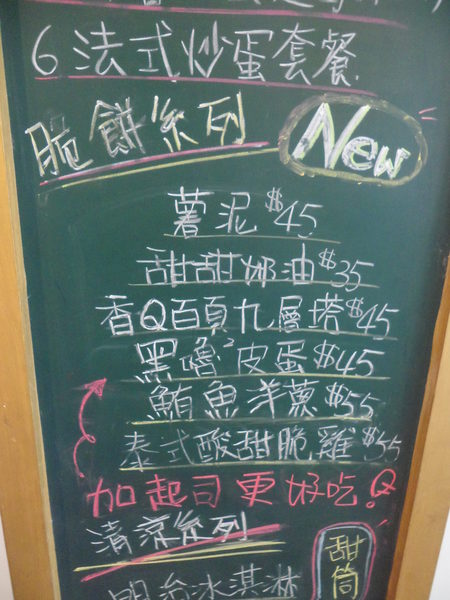 6 法式炒蛋套餐
脆餅系列 New
薯泥 $45
甜甜奶油 $35
香Q百頁九層塔 $45
黑嚕²皮蛋 $45
鮪魚洋蔥 $55
泰式酸甜脆雞 $55
加起司更好吃!Q
清涼系列
明治冰淇淋
甜筒